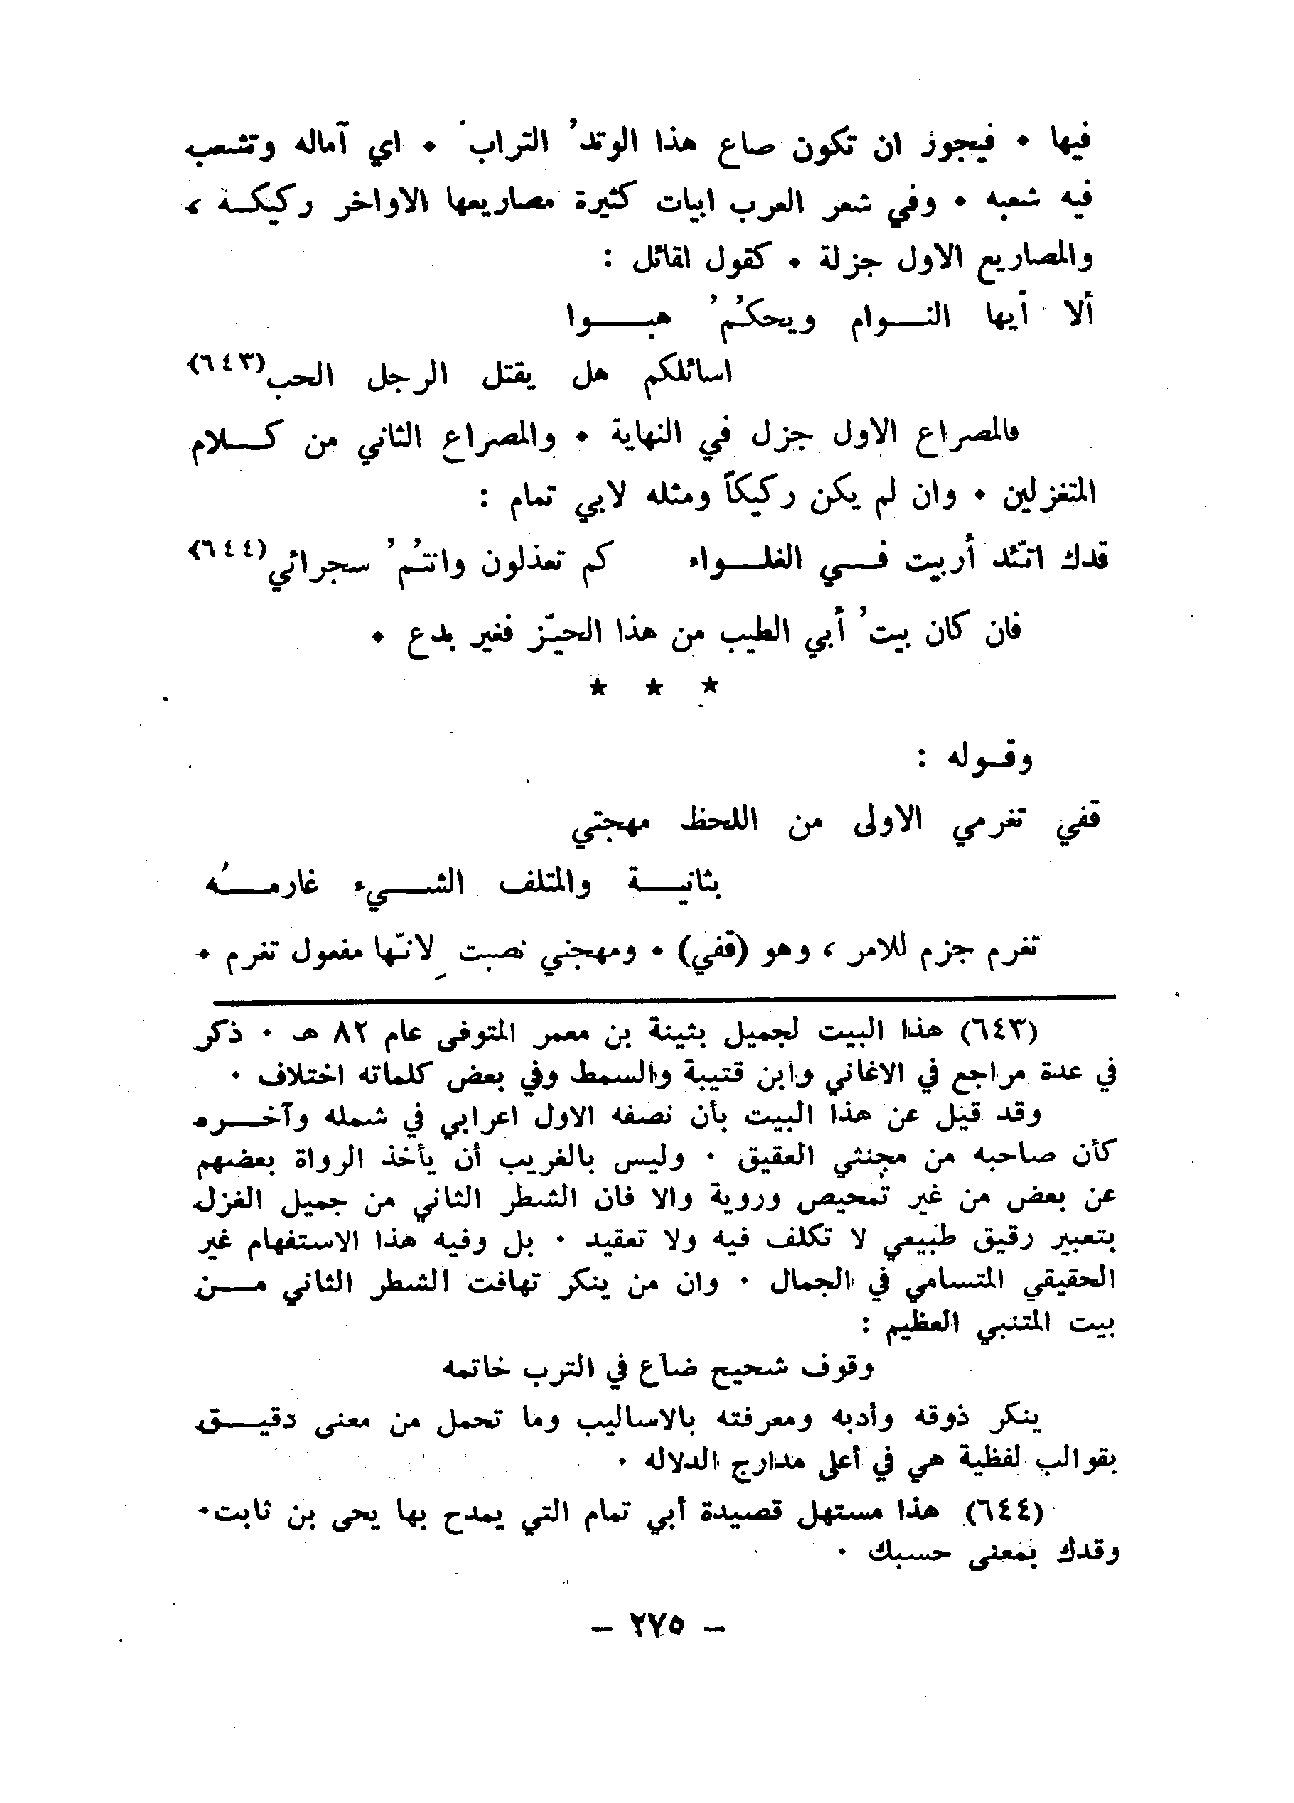 فيها • فيجوز ان تكون صاع هذا الوتدُ الترابَ • اي آماله وتشعب
فيه شعبه • وفي شعر العرب ابيات كثيرة مصاريعها الاواخر ركيكة ،
والمصاريع الاول جزلة • كقول لقائل :
ألا أيها النوام ويحكُمُ هبوا
اسائلكم هل يقتل الرجل الحب(٦٤٣)
فالمصراع الاول جزل في النهاية • والمصراع الثاني من كلام
المتغزلين • وان لم يكن ركيكاً ومثله لابي تمام :
قدك اتئد أربيت في الغلواء كم تعذلون وانتُمُ سجرائي(٦٤٤)
فان كان بيتُ أبي الطيب من هذا الحيّز فغير بدع •
★ ★ ★
وقوله :
قفي تغرمي الاولى من اللحظ مهجتي
بثانية والمتلف الشيء غارمُه
تغرم جزم للامر ، وهو (قفي) • ومهجتي نصبت لانّها مفعول تغرم •
(٦٤٣) هذا البيت لجميل بثينة بن معمر المتوفى عام ٨٢ هـ • ذكر
في عدة مراجع في الاغاني وابن قتيبة والسمط وفي بعض كلماته اختلاف •
وقد قيل عن هذا البيت بأن نصفه الاول اعرابي في شمله وآخره
كأن صاحبه من مخنثي العقيق • وليس بالغريب أن يأخذ الرواة بعضهم
عن بعض من غير تمحيص وروية والا فان الشطر الثاني من جميل الغزل
بتعبير رقيق طبيعي لا تكلف فيه ولا تعقيد • بل وفيه هذا الاستفهام غير
الحقيقي المتسامي في الجمال • وان من ينكر تهافت الشطر الثاني من
بيت المتنبي العظيم :
وقوف شحيح ضاع في الترب خاتمه
ينكر ذوقه وأدبه ومعرفته بالاساليب وما تحمل من معنى دقيق
بقوالب لفظية هي في أعلى مدارج الدلاله •
(٦٤٤) هذا مستهل قصيدة أبي تمام التي يمدح بها يحى بن ثابت•
وقدك بمعنى حسبك •
– ٢٧٥ –